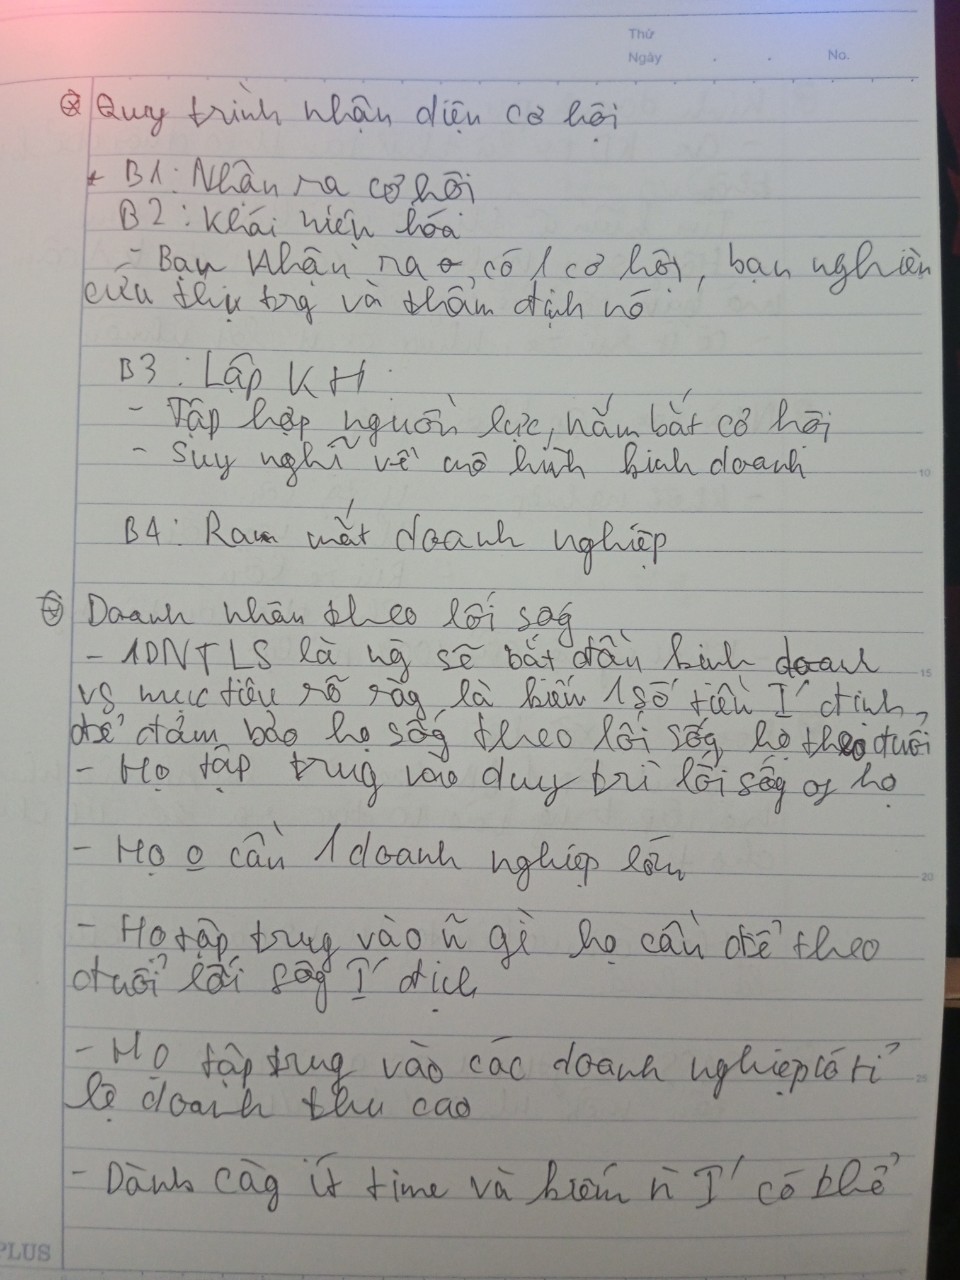 Thứ
Ngày . . No.
⊗ Quy trình nhận diện cơ hội
* B1: Nhận ra cơ hội
B2: Khái niệm hóa
- Bạn nhận ra có 1 cơ hội, bạn nghiên
cứu thị trg và thẩm định nó
B3: Lập KH
- Tập hợp nguồn lực, nắm bắt cơ hội
- Suy nghĩ về mô hình kinh doanh
10
B4: Ra mắt doanh nghiệp
⊗ Doanh nhân theo lối sốg
- 1DNTLS là ng sẽ bắt đầu kinh doanh
15
vs mục tiêu rõ ràg là kiếm 1 số tiền I' định
để đảm bảo họ sốg theo lối sốg họ theo đuổi
- Họ tập trug vào duy trì lối sốg of họ
- Họ o cần 1 doanh nghiệp lớn
20
- Họ tập trug vào ~n gì họ cần để theo
đuổi lối sốg I' định
- Họ tập trug vào các doanh nghiệp có tỉ
25
lệ doanh thu cao
- Dành càg ít time và kiếm ǹ I' có thể
PLUS